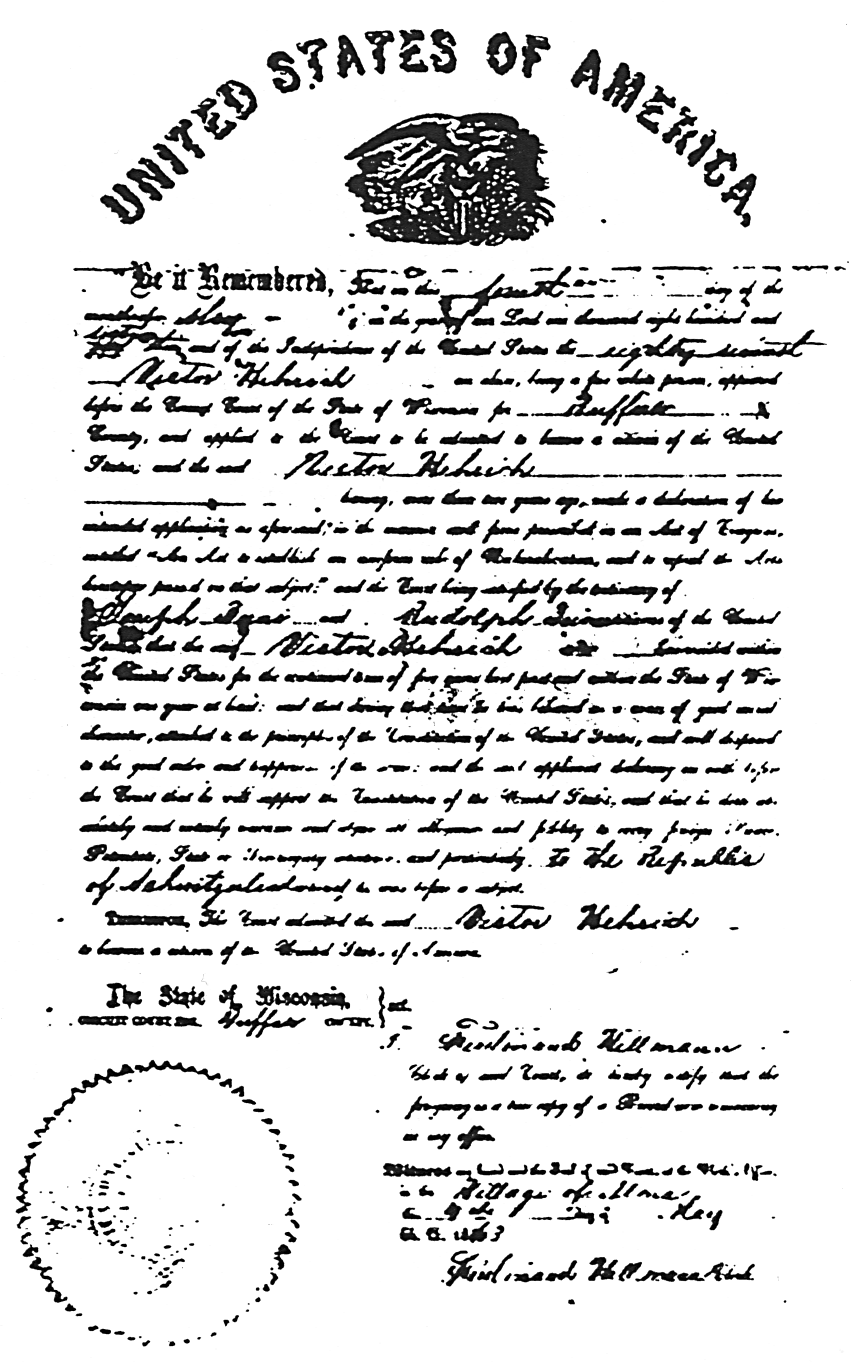 UNITED STATES OF AMERICA.
Be it Remembered, That on this fourth day of the
month of May in the year of our Lord one thousand eight hundred and
and of the Independence of the United States the eighty seventh
Victor Hehrich an alien, being a free white person, appeared
before the Circuit Court of the State of Wisconsin for Buffalo
County, and applied to the Court to be admitted to become a citizen of the United
States; and the said Victor Hehrich
having, more than two years ago, made a declaration of his
intended application as aforesaid; in the manner and form prescribed in an Act of Congress,
entitled "An Act to establish an uniform rule of Naturalization, and to repeal the Acts
heretofore passed on that subject:" and the Court being satisfied by the testimony of
Joseph and Rudolph citizens of the United
States that the said Victor Hehrich has resided within
the United States for the continued term of five years last past and within the State of Wis-
consin one year at least: and that during that time he has behaved as a man of good moral
character, attached to the principles of the Constitution of the United States, and well disposed
to the good order and happiness of the same: and the said applicant declaring on oath before
the Court that he will support the Constitution of the United States, and that he does ab-
solutely and entirely renounce and abjure all allegiance and fidelity to every foreign Prince,
Potentate, State or Sovereignty whatever, and particularly to the Republic
of Schwitzerland whereof he was before a subject.
Therefore, The Court admitted the said Victor Hehrich
to become a citizen of the United States of America.
The State of Wisconsin, } ss.
CIRCUIT COURT FOR Buffalo COUNTY.
I, Ferdinand Hellmann
Clerk of said Court, do hereby certify that the
foregoing is a true copy of a Record now remaining
in my office.
Witness my hand and the Seal of said Court, at the Clerk's Office
in the Village of Alma
this day of May
A. D. 1863
Ferdinand Hellmann Clerk